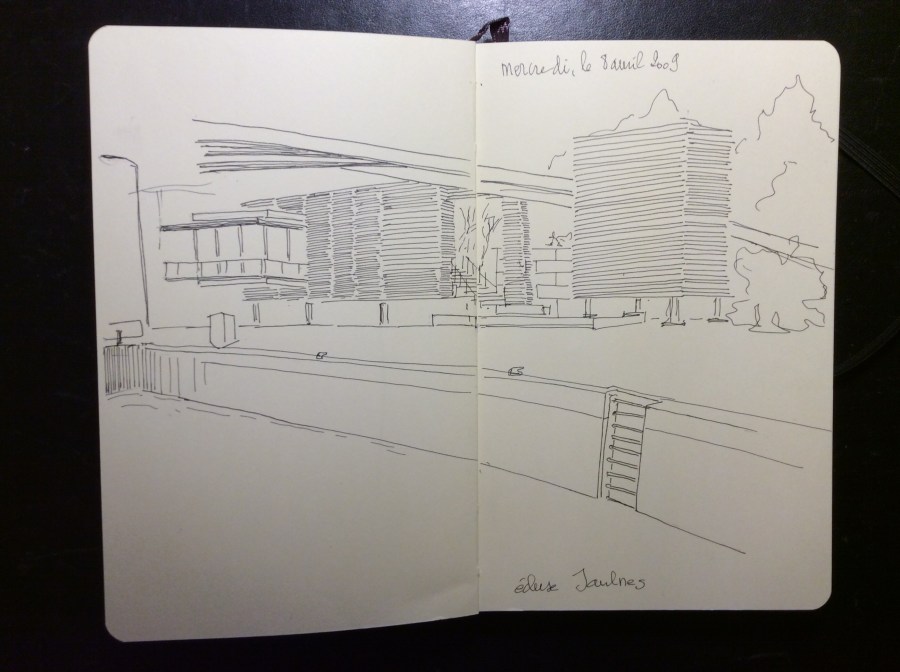 mercredi, le 8 avril 2009
écluse Jaulnes